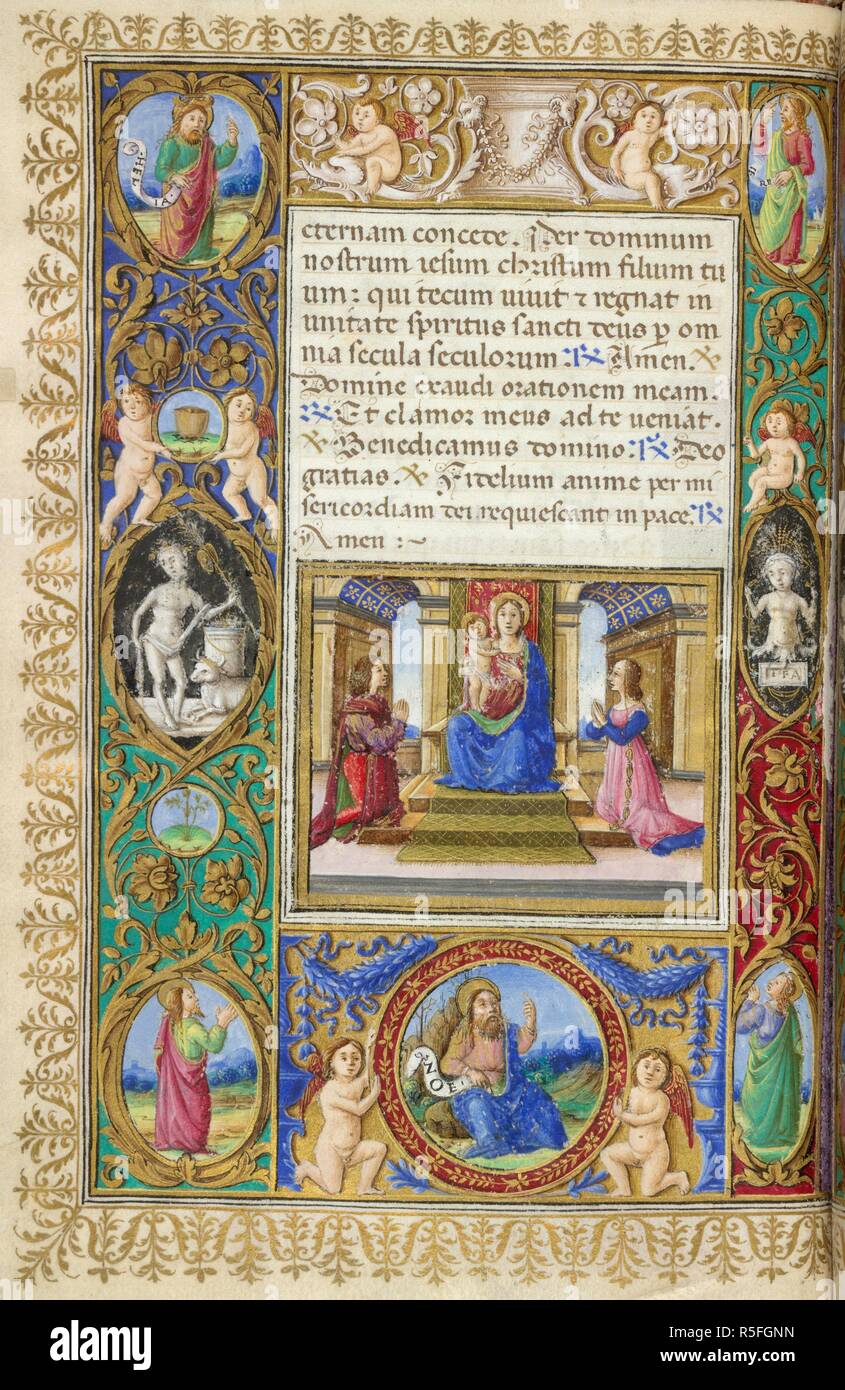 HEL
IA
RE
eternam concede. Per dominum
nostrum iesum christum filium tu
um: qui tecum uiuit ⁊ regnat in
unitate spiritus sancti deus p̱ om
nia secula seculorum. ℟ Amen.
Domine exaudi orationem meam.
℟ Et clamor meus ad te ueniat.
Benedicamus domino. ℟ Deo
gratias. Fidelium anime per mi
sericordiam dei requiescant in pace. ℟
Amen :~
NOE
alamy
Image ID: R5FGNN
www.alamy.com